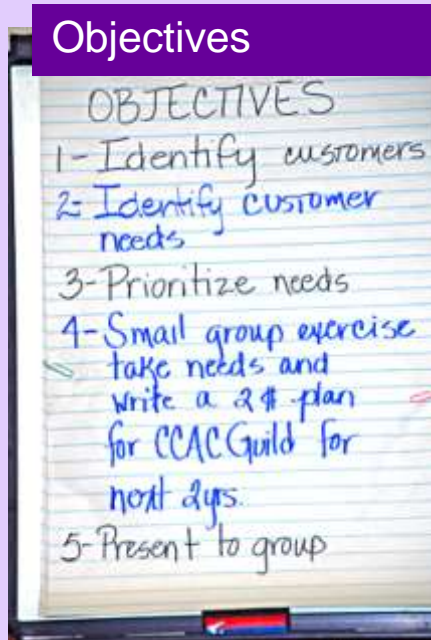 Objectives
OBJECTIVES
1- Identify customers
2- Identify customer
needs
3- Prioritize needs
4- Small group exercise
take needs and
write a 2# plan
for CCAC Guild for
next 2yrs.
5- Present to group